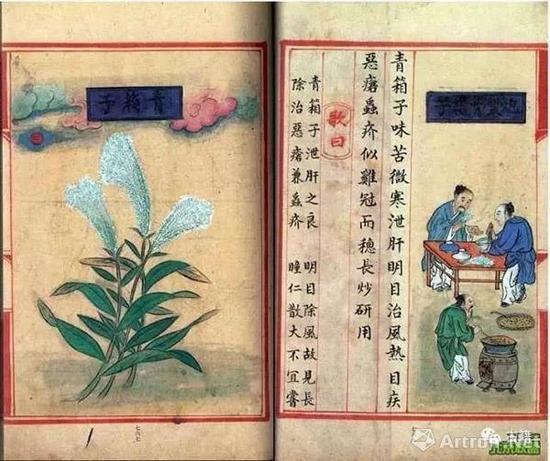 青箱子味苦微寒泄肝明目治風熱目疾
惡瘡蟲疥似雞冠而穗長炒研用
歌曰
青箱子泄肝之良 明目除風故見長
除治惡瘡兼蟲疥 瞳仁散大不宜嘗
青箱子
古籍
Artron.Net